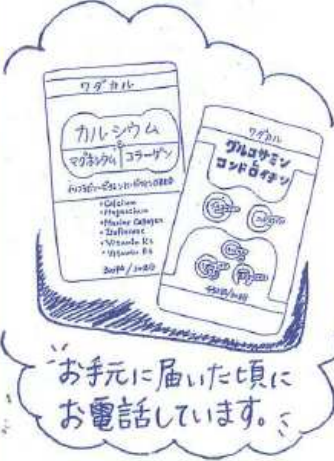 ワダカル
カルシウム
マグネシウム コラーゲン
・Calcium
・Magnesium
・Marine Collagen
・Isoflavone
・Vitamin K2
・Vitamin D3
ワダカル
グルコサミン
コンドロイチン
お手元に届いた頃に
お電話しています。